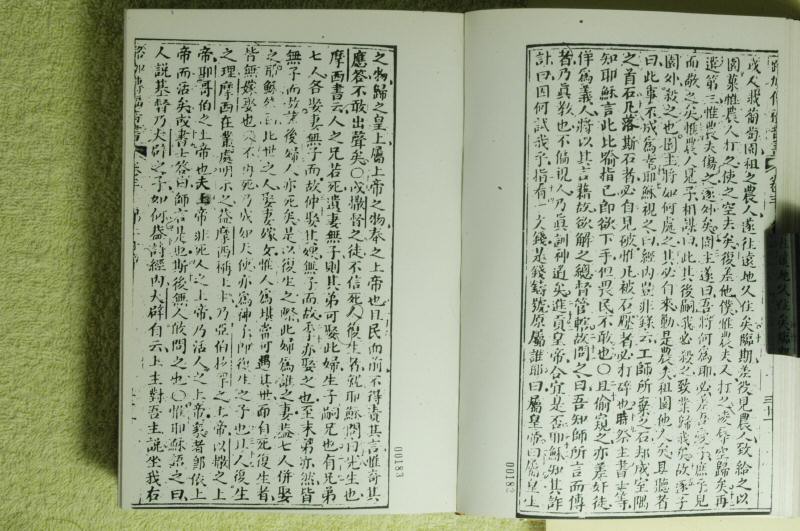 成人栽葡萄園租之農人遂往遠地久住矣臨期差役見農人致給之以
園菓惟農人打之使之空去矣復差他僕惟農人又打之凌辱空歸矣再
遣第三惟農夫傷之逐外矣園主遂曰吾將何為耶必差吾愛子庶乎見
而敬之矣惟農人見子相謀曰此其後嗣我必殺之致業歸我矣故逐子
園外殺之也園主將如何處之其必自來勦是農夫租園他人矣且聽者
曰此事不成為幸耶穌視之曰經內豈非錄云工師所棄之石却成室隅
之首石凡落斯石者必自見破惟此被石壓者必打碎也時祭主書士等
知耶穌言此比喻指己即欲下手但畏民不敢也〇且偷窺之亦差奸徒
佯為義人將以其言藉故欲解之總督管轄故問之曰吾知師所言而傳
者乃真教也不偏視人乃真訓神道矣進貢皇帝合宜是否耶穌知其詐
計曰因何試我乎指有一大錢是錢鑄號原屬誰耶曰屬皇帝曰屬皇
00182
之物歸之皇上屬上帝之物奉之上帝也且民面前不得責其言惟奇其
應答不敢出聲矣〇或撒督之徒不信死人復生者就耶穌問曰先生也
摩西書云人之兄若死遺妻無子則其弟可娶此婦生子嗣兄也有兄弟
七人各娶妻無子而故仲娶其嫂無子而故季亦娶之也至末弟亦然皆
無子而故業後婦人亦死矣是以復生之際此婦為誰之妻蓋七人併娶
之耶穌答曰此世之人娶妻嫁女惟人為堪當可遇其世而自死復生者
皆無嫁娶也又不再死乃成如天使亦為神子即復生之子也且人復生
之理摩西在叢處明示之蓋摩西稱上主乃亞伯拉罕之上帝以撒之上
帝耶哥伯之上帝也夫上帝非死人之上帝乃活人之上帝衆者都依上
帝而活矣或書士答曰師言是也斯後無人敢問之也〇惟耶穌語之曰
人說基督乃大辟之子如何蓋詩經內大辟自云上主對吾主說坐我右
00183